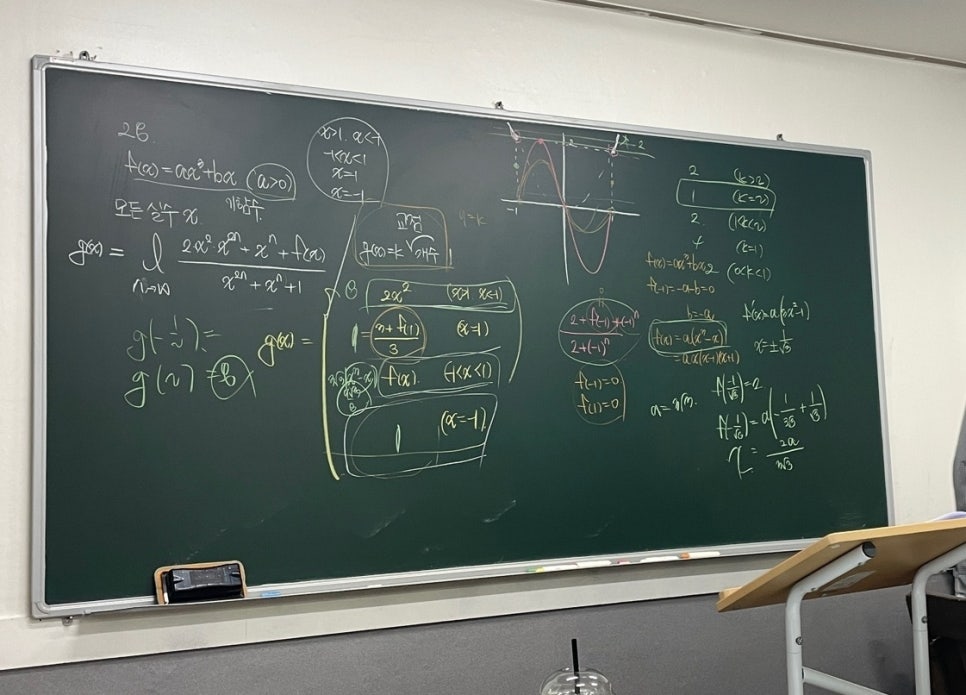 28.
f(x)=ax³+bx (a>0)
모든 실수 x
g(x) = l 2x²·x²ⁿ+xⁿ+f(x) / x²ⁿ+xⁿ+1
n→∞
g(-1/2)=
g(2) =8
x>1, x<-1
-1<x<1
x=1
x=-1
교점
g(x)=k 개수
y=k
g(x) =
8 2x² (x>1, x<-1)
1 = 3+f(1) / 3 (x=1)
f(x). (-1<x<1)
1 (x=-1)
-1
2
2+f(-1)+(-1)ⁿ / 2+(-1)ⁿ
f(-1)=0
f(1)=0
2 (k>2)
1 (k=2)
2. (1<k<2)
(k=1)
(0<k<1)
f(-1)=-a-b=0
b=-a
f(x)=a(x³-x)
=ax(x-1)(x+1)
f'(x)=a(3x²-1)
x=±1/√3
f(-1/√3)=2
f(-1/√3)=a(-1/3√3+1/√3)
2 = 2a / 3√3
a=3√3.